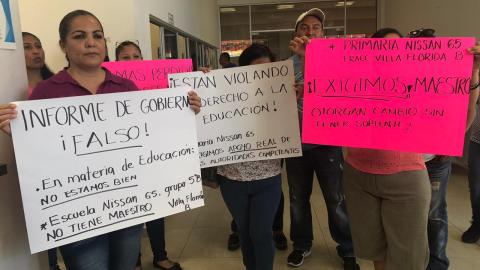 INFORME DE GOBIERNO
¡FALSO!
• En materia de Educación:
NO ESTAMOS BIEN
* Escuela Nissan 65. grupo 5ºB
NO TIENE MAESTRO
Villa Florida
B
¡ESTAN VIOLANDO
DERECHO A LA
EDUCACIÓN!
Primaria Nissan 65
EXIGIMOS APOYO REAL DE
AUTORIDADES COMPETENTES
PRIMARIA NISSAN 65
FRACC VILLA FLORIDA B
¡EXIGIMOS MAESTRO
OTORGAN CAMBIO SIN
TENER